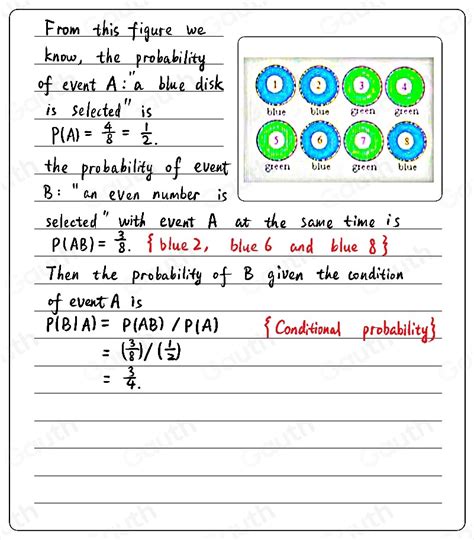 From this figure we
know, the probability
of event A: "a blue disk
is selected" is
P(A) = 4/8 = 1/2.
1 2 3 4
blue blue green green
5 6 7 8
green blue green blue
the probability of event
B: "an even number is
selected" with event A at the same time is
P(AB) = 3/8. {blue 2, blue 6 and blue 8}
Then the probability of B given the condition
of event A is
P(B|A) = P(AB) / P(A) {Conditional probability}
= (3/8)/(1/2)
= 3/4.
Gauth